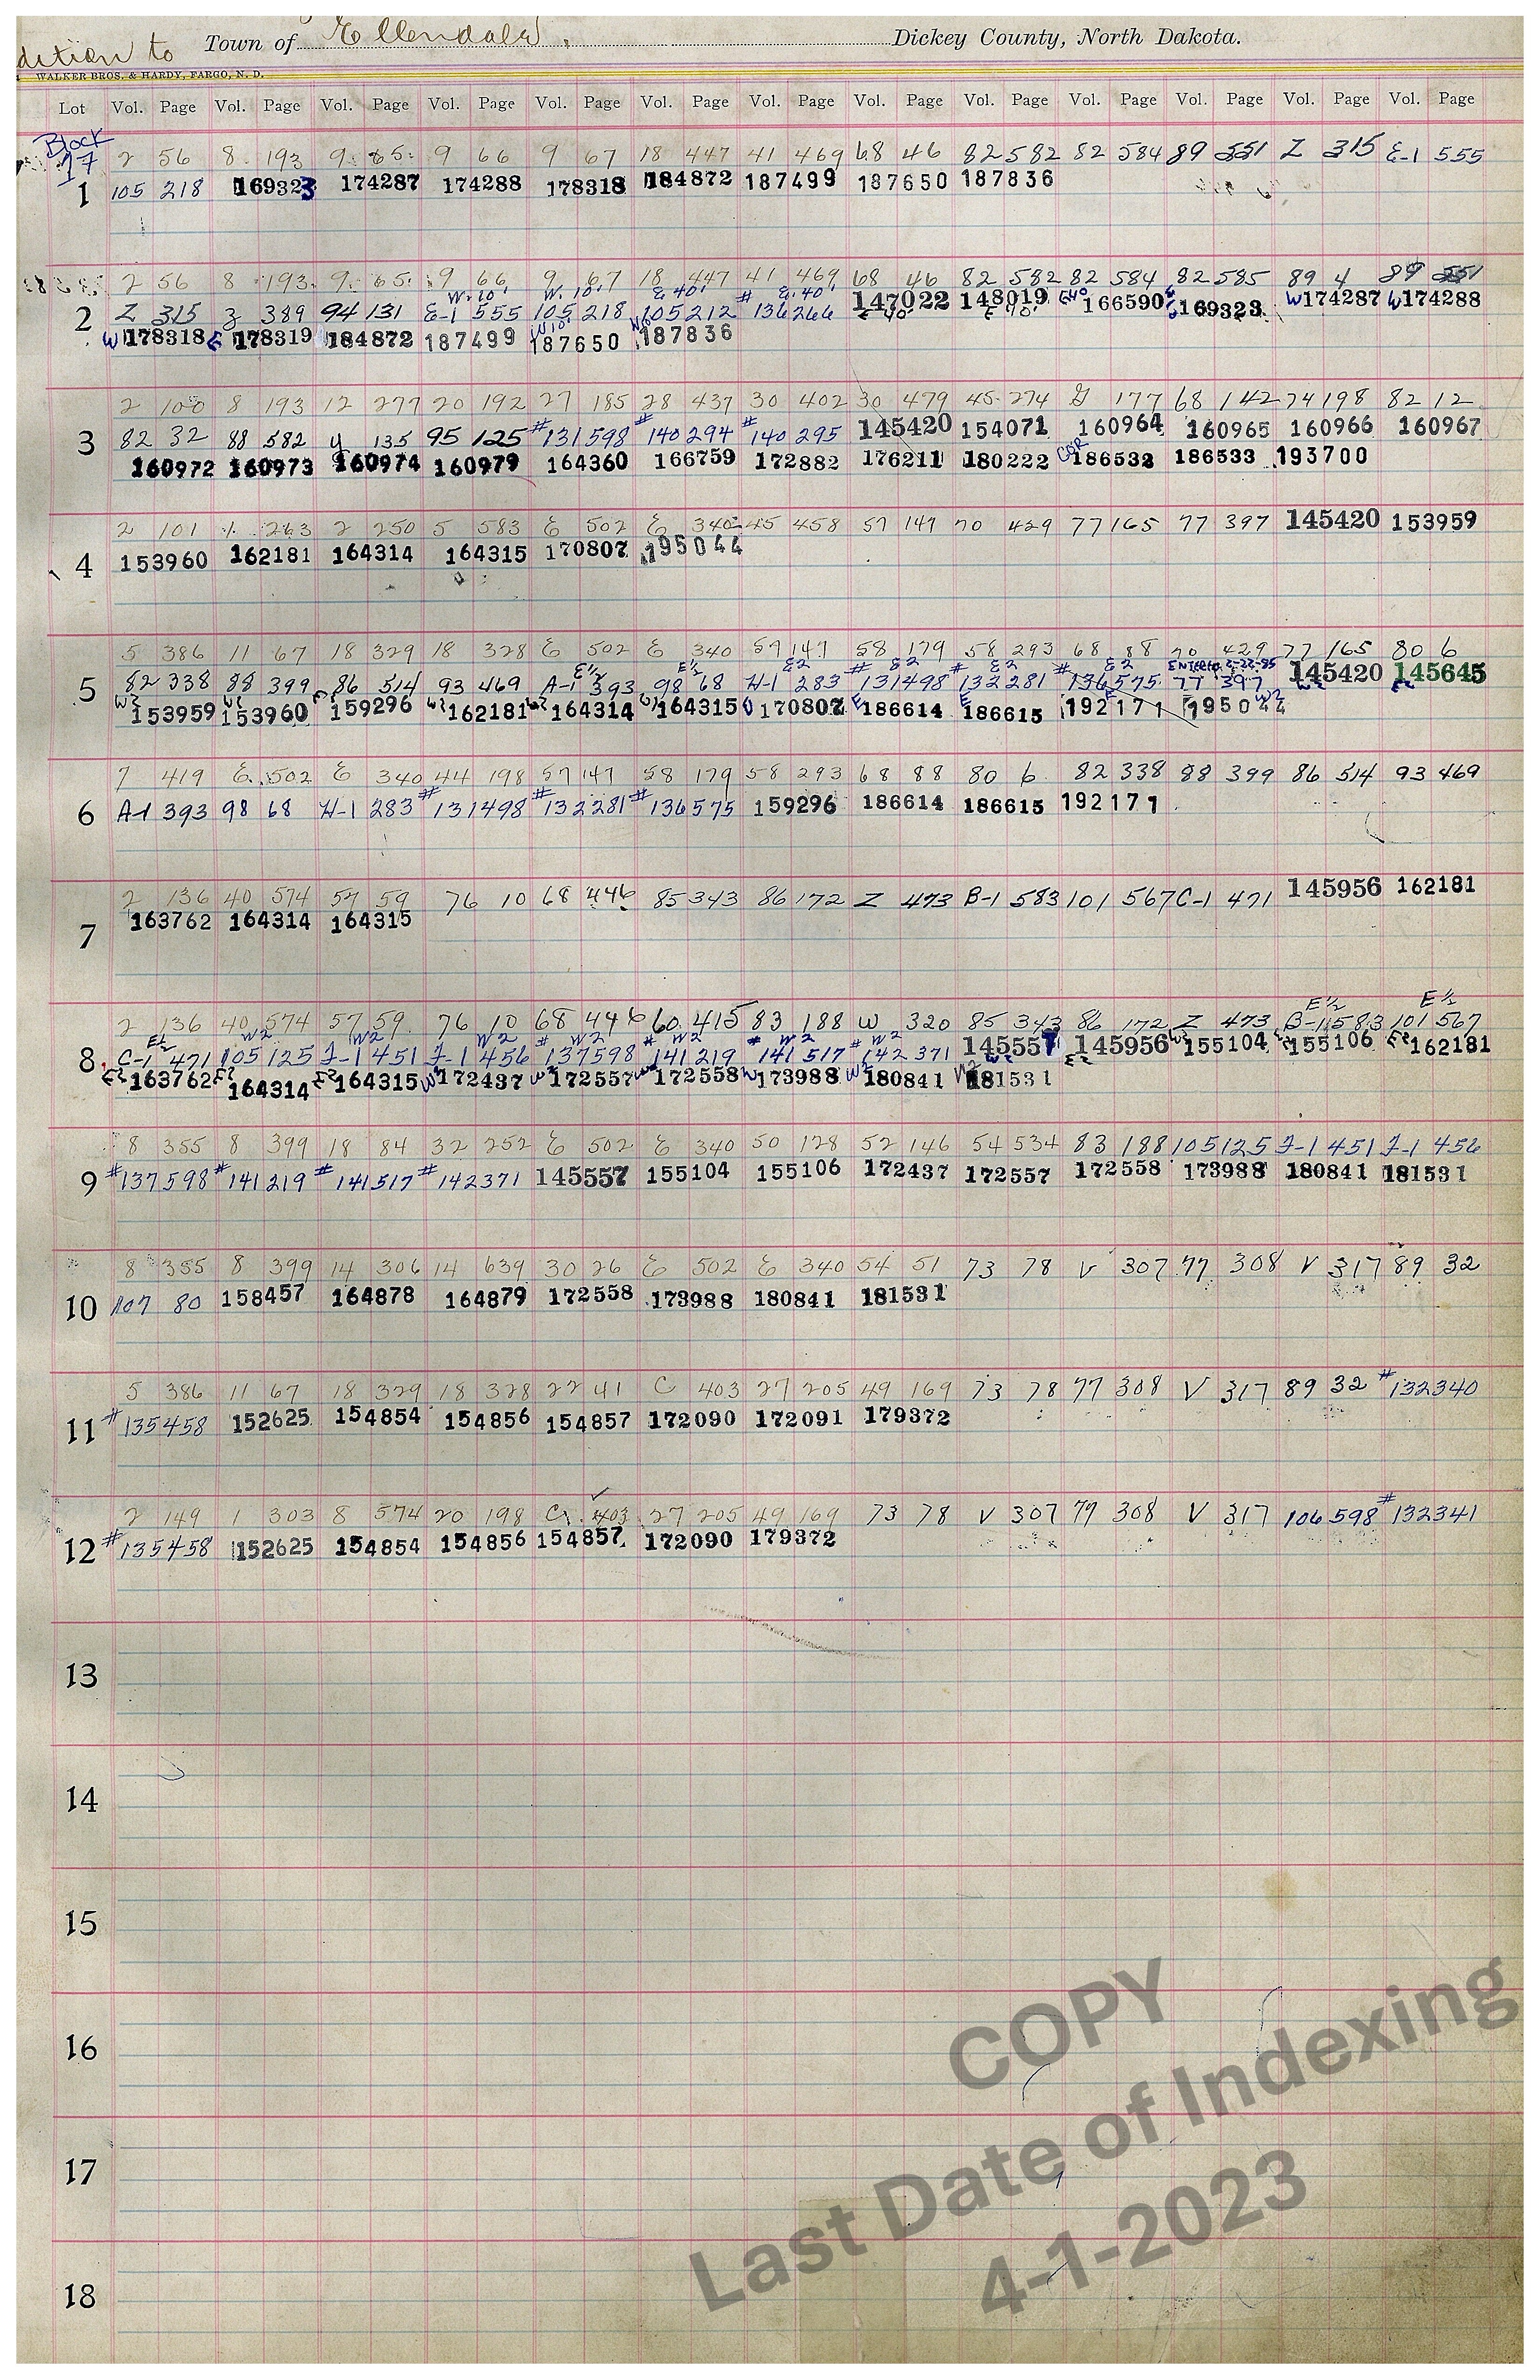 dition to Town of Ellendale, Dickey County, North Dakota.
WALKER BROS. & HARDY, FARGO, N. D.
Lot Vol. Page Vol. Page Vol. Page Vol. Page Vol. Page Vol. Page Vol. Page Vol. Page Vol. Page Vol. Page Vol. Page Vol. Page Vol. Page
Block
17
2 56 8 193 9 65 9 66 9 67 18 447 41 469 68 46 82 582 82 584 89 551 Z 315 E-1 555
1 105 218 169323 174287 174288 178318 184872 187499 187650 187836
2 56 8 193 9 65 9 66 9 67 18 447 41 469 68 46 82 582 82 584 82 585 89 4 89 551
W. 10' W. 10' E 40' E. 40'
2 Z 315 Z 389 94 131 E-1 555 105 218 105 212 # 136266 147022 148019 E40 166590 169323 W174287 W174288
E 40' E 40'
W178318 E 178319 184872 187499 W10' 187650 187836
2 100 8 193 12 277 20 192 27 185 28 437 30 402 30 479 45 274 G 177 68 142 74 198 82 12
3 82 32 88 582 Y 135 95 125 #131598 #140294 #140295 145420 154071 160964 160965 160966 160967
160972 160973 160974 160979 164360 166759 172882 176211 180222 COR 186532 186533 193700
2 101 1 263 2 250 5 583 E 502 E 340 45 458 57 147 70 429 77 165 77 397 145420 153959
4 153960 162181 164314 164315 170807 195044
5 386 11 67 18 329 18 328 E 502 E 340 57 147 58 179 58 293 68 88 70 429 77 165 80 6
E½ E½ E2 E2 E2 E2 ENTERED 2-22-85
5 82 338 88 399 86 514 93 469 A-1 393 98 68 H-1 283 #131498 #132281 #136575 77 397 145420 145645
W2 153959 W2 153960 E2 159296 W2 162181 W2 164314 W2 164315 170807 E 186614 E 186615 E 192171 195044 W2
7 419 E 502 E 340 44 198 57 147 58 179 58 293 68 88 80 6 82 338 88 399 86 514 93 469
6 A-1 393 98 68 H-1 283 #131498 #132281 #136575 159296 186614 186615 192171
2 136 40 574 57 59 76 10 68 446 85 343 86 172 Z 473 B-1 583 101 567 C-1 471 145956 162181
7 163762 164314 164315
E½ E½
2 136 40 574 57 59 76 10 68 446 60 415 83 188 W 320 85 343 86 172 Z 473 B-1 583 101 567
E½ W2 W2 W2 W2 W2 W2 W2
8 C-1 471 105 125 J-1 451 J-1 456 #137598 #141219 #141517 #142371 145557 145956 W2 155104 W2 155106 E2 162181
E2 163762 E2 164314 E2 164315 W2 172437 W2 172557 W2 172558 W 173988 W2 180841 W2 181531
8 355 8 399 18 84 32 252 E 502 E 340 50 128 52 146 54 534 83 188 105 125 J-1 451 J-1 456
9 #137598 #141219 #141517 #142371 145557 155104 155106 172437 172557 172558 173988 180841 181531
8 355 8 399 14 306 14 639 30 26 E 502 E 340 54 51 73 78 V 307 77 308 V 317 89 32
10 107 80 158457 164878 164879 172558 173988 180841 181531
5 386 11 67 18 329 18 328 22 41 C 403 27 205 49 169 73 78 77 308 V 317 89 32 #132340
11 #135458 152625 154854 154856 154857 172090 172091 179372
2 149 1 303 8 574 20 198 C 403 27 205 49 169 73 78 V 307 77 308 V 317 106 598 #132341
12 #135458 152625 154854 154856 154857 172090 179372
13
14
15
16
17
18
COPY
Last Date of Indexing
4-1-2023